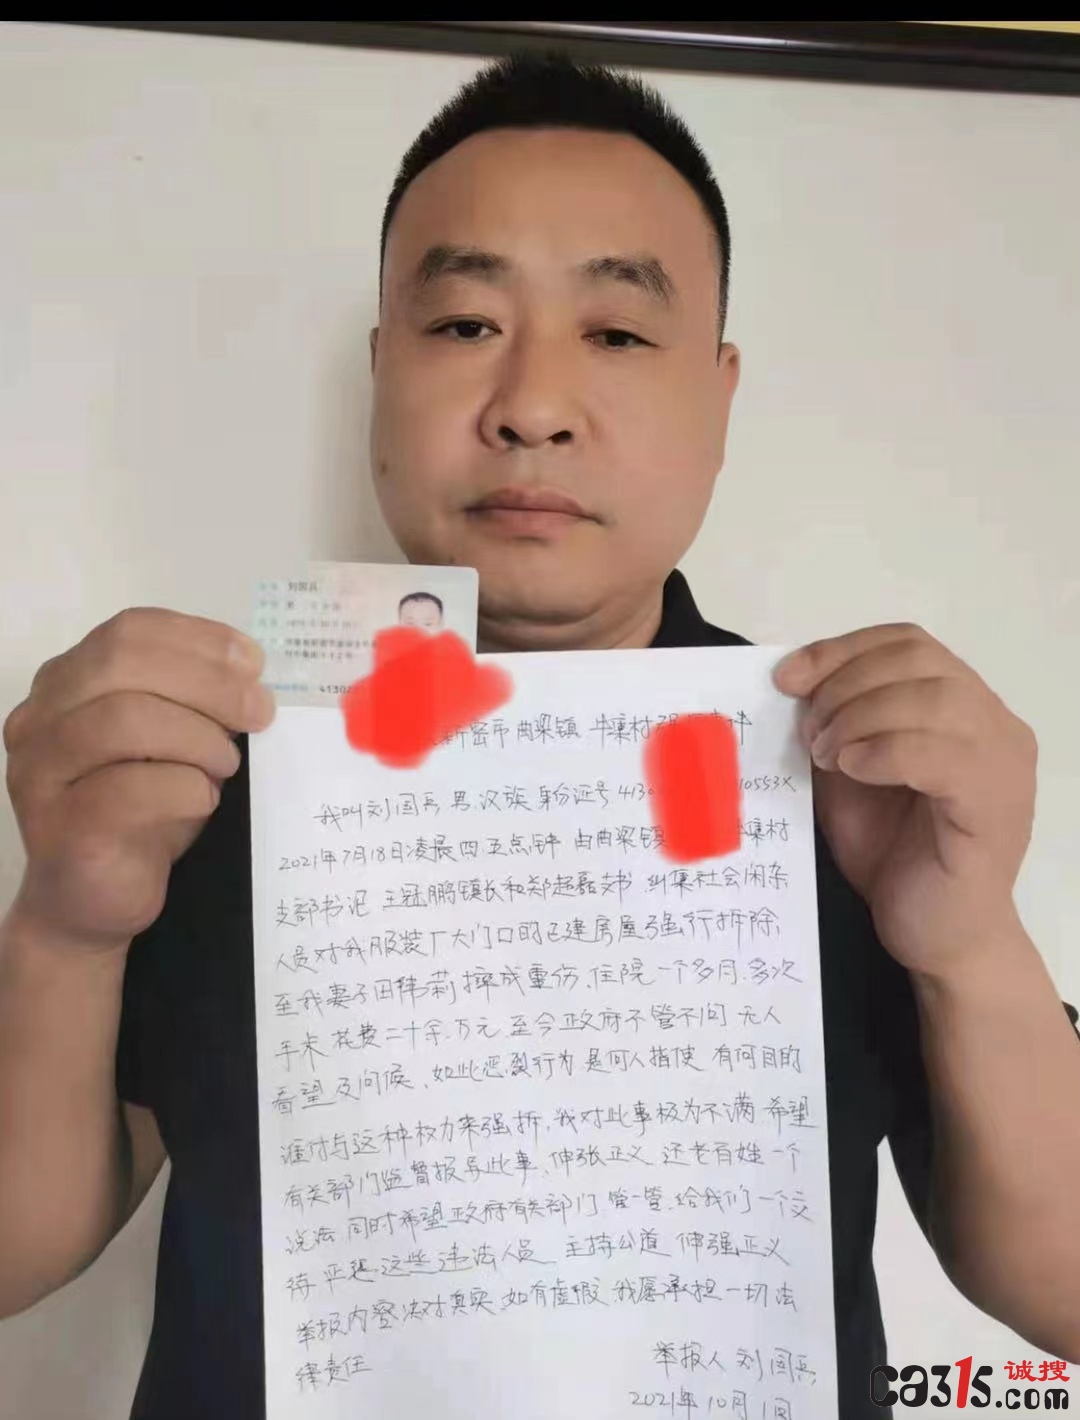 刘国兵
41302
新密市曲梁镇牛集村强
件
我叫刘国兵 男.汉族 身份证号4130
10553X
2021年7月18日凌晨四五点钟 由曲梁镇
牛集村
支部书记 王冠鹏镇长和郑超磊支书 纠集社会闲杂
人员对我服装厂大门口的已建房屋强行拆除,
至我妻子田伟莉摔成重伤、住院一个多月.多次
手术 花费二十余万元 至今政府不管不问 无人
看望及问候、如此恶裂行为 是何人指使 有何目的
谁付与这种权力来强拆,我对此事极为不满 希望
有关部门监督报导此事、伸张正义 还老百姓一个
说法 同时希望政府有关部门,管一管.给我们一个交
待 严惩这些违法人员 主持公道 伸强正义
举报内容决对真实.如有虚假 我愿承担一切法
律责任
举报人 刘国兵
2021年10月1日
ca315诚搜
.com